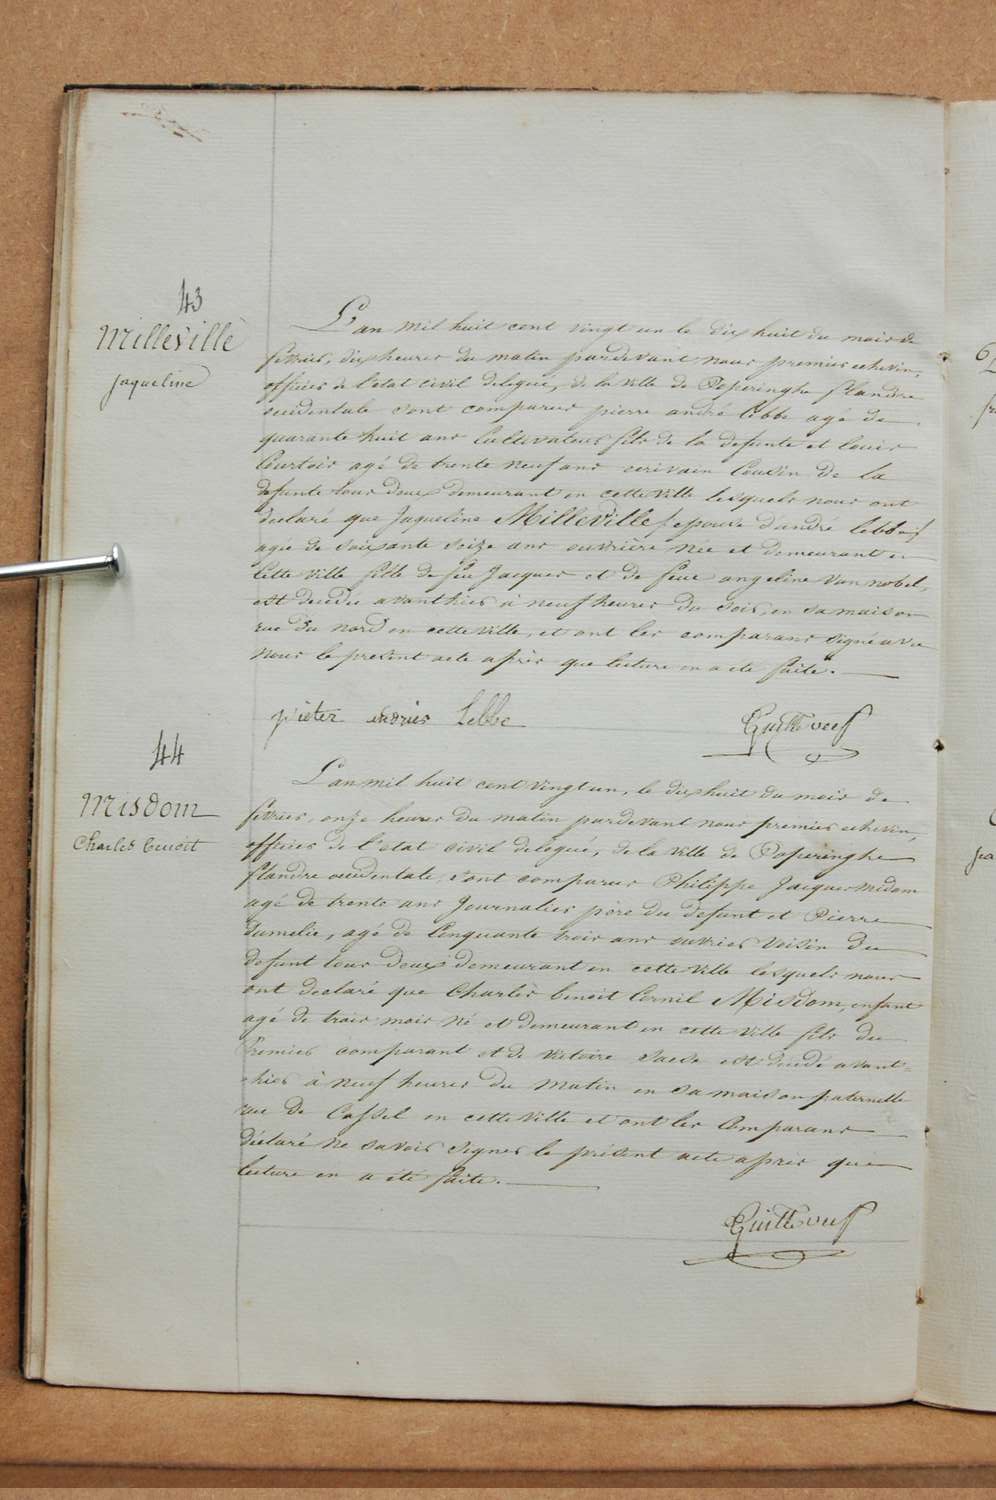 43
Milleville
jaqueline
L'an mil huit cent vingt un le dix huit du mois de
février, dix heures du matin pardevant nous premier echevin,
officier de l'etat civil delegué, de la ville de Poperinghe flandre
occidentale sont comparus pierre andré lebbe agé de
quarante huit ans Cultivateur fils de la defunte et louis
Courtois agé de trente neuf ans ecrivain Cousin de la
defunte tous deux demeurant en cette ville lesquels nous ont
declaré que Jaqueline Milleville / epouse d'andré lebbe /
agée de soixante seize ans ouvrière née et demeurant en
Cette ville fille de feu Jacques et de feue angeline Van nobel,
est decedée avanthier à neuf heures du soir, en sa maison
rue du nord en cette ville, et ont les comparans signé avec
nous le present acte après que lecture en a eté faite.
pieter andries lebbe
44
Misdom
Charles benoit
L'an mil huit cent vingt un, le dix huit du mois de
février, onze heures du matin pardevant nous premier echevin,
officier de l'etat civil delegué, de la ville de Poperinghe
flandre occidentale, sont comparus Philippe Jacques misdom
agé de trente ans Journalier père du defunt et Pierre
agé de Cinquante trois ans ouvrier Voisin du
defunt tous deux demeurant en cette Ville lesquels nous
ont declaré que Charles benoit Cornil Misdom, enfant
agé de trois mois né et demeurant en cette ville fils du
Premier comparant et de Victoire est decedé avant-
hier à neuf heures du matin en sa maison paternelle
rue de Cassel en cette ville et ont les Comparans
déclaré ne savoir signer le présent acte après que
lecture en a eté faite.